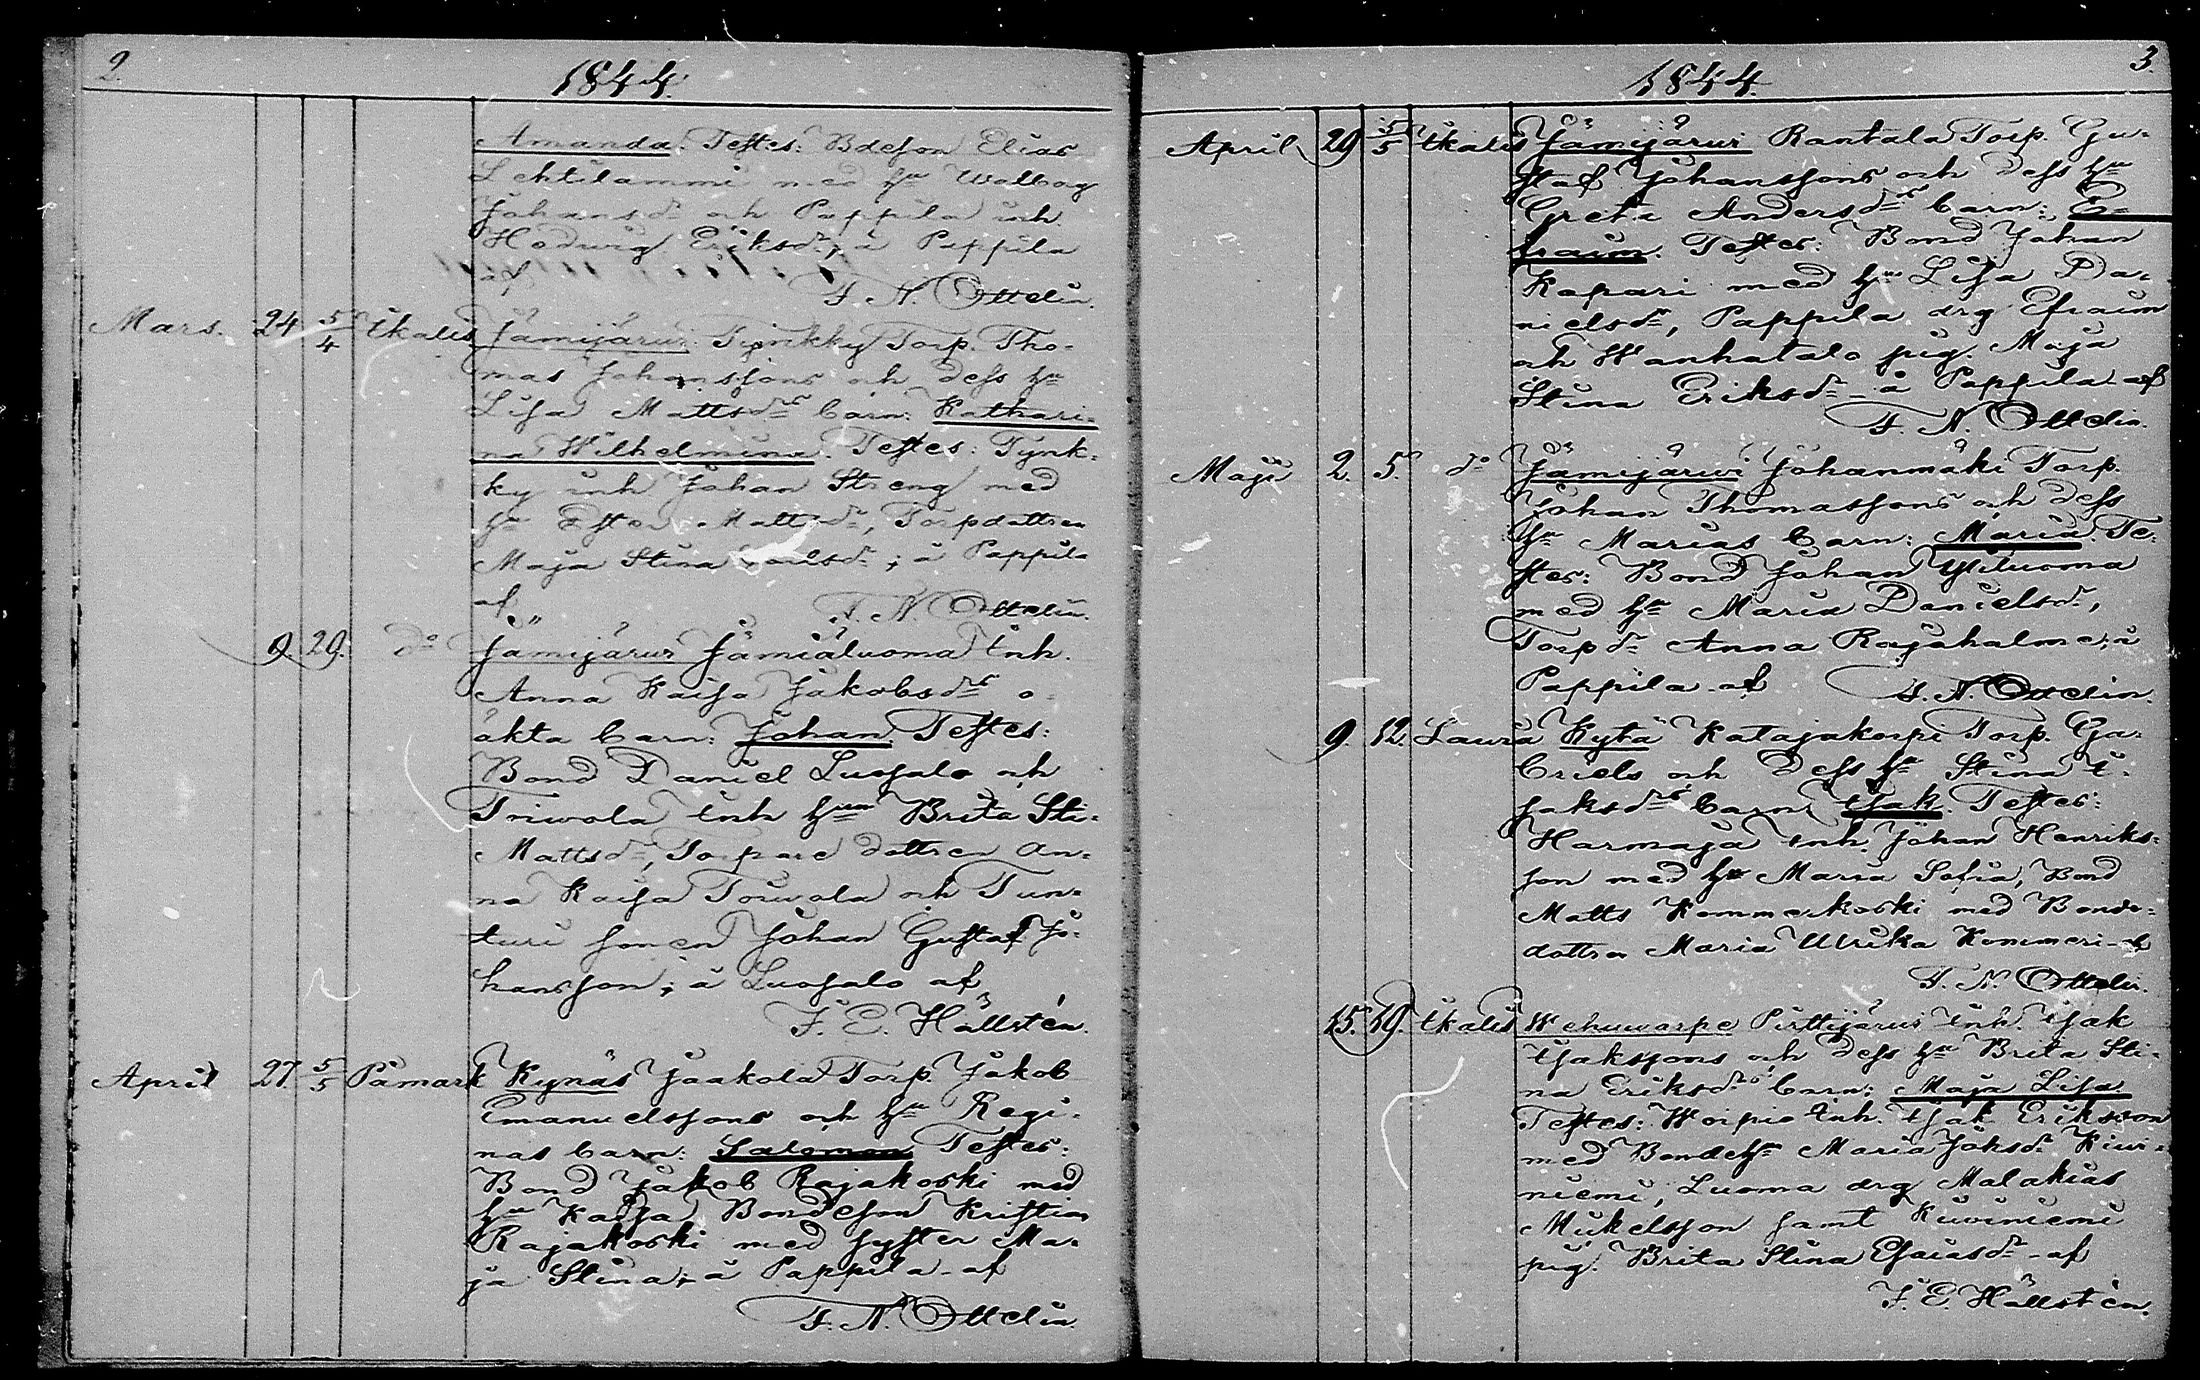 2.
1844.
Amanda. Testes: Bdeson Elias
Lehtilammi med hu Walbog
Johansdr och Pappila inh.
Hedwig Eriksdr; å Pappila
af
F. N. Ottelin.
Mars. 24 5/4 Ikalis Jämijärvi Tynkky Torp. Tho-
mas Johanssons och dess hu
Lisa Mattsdrs barn: Kathari-
na Wilhelmina. Testes: Tynk-
ky inh Johan Streng med
hu Ester Mattsdr, Torpdottren
Maja Stina ; å Pappila
af „ F. N. Ottelin.
9 29. do Jämijärvi Jämiäluoma Inh.
Anna Kaisa Jakobsdrs o-
äkta barn: Johan. Testes:
Bond Daniel Luosalo och
Triwola Inh hun Brita Sti-
Mattsdr, Torpare dottren An-
na Kaisa Toiwola och Tun-
turi sonen Johan Gustaf Jo-
hansson; å Luosalo af
F. E. Hällstén.
April 27 5/5 Påmark Kynäs Jaakola Torp. Jakob
Emanuelssons och hu Regi-
nas barn: Salomon Testes:
Bond Jakob Rajakoski med
hu Kaisa Bondeson Kristian
Rajakoski med syster Ma-
ja Stina; å Pappila af
F. N. Ottelin.
3.
1844.
April 29 5/5 Ikalis Jämijärvi Rantala Torp. Gu-
staf Johanssons och dess hu
Greta Andersdrs barn: E-
fraim. Testes: Bond Johan
Kapari med hu Lisa Da-
nielsdr, Pappila drg Efraim
och Wanhatalo pig. Maja
Stina Eriksdr å Pappila af
F. N. Ottelin.
Maji 2. 5. do Jämijärwi Johanmäki Torp.
Johan Thomassons och dess
hu Marias barn: Maria. Te-
stes: Bond Johan Yliluoma
med hu Maria Danielsdr,
Torpdr Anna Rajahalme; å
Pappila af F. N. Ottelin.
9. 12. Lauria Kytä Katajakorpi Torp. Ga-
briels och dess hu Stina I-
saksdrs barn Isak. Testes:
Harmaja Inh. Johan Henriks-
son med hu Maria Sofia, Bond
Matts Kommerkoski med Bonde-
dottren Maria Ulrika Kommeri af
F. N. Ottelin.
15. 19. Ikalis Wehuwarpe Pirttijärvi Inh. Isak
Isakssons och dess hu Brita Sti-
na Eriksdrs barn: Maja Lisa
Testes: Woipio Inh. Isak Eriksson
med Bondehu Maria Jaksdr Kiwi-
niemi, Luoma drg Malakias
Mikelsson samt Kiwiniemi
pig. Brita Stina Esaiasdr af
F. E. Hällstén.